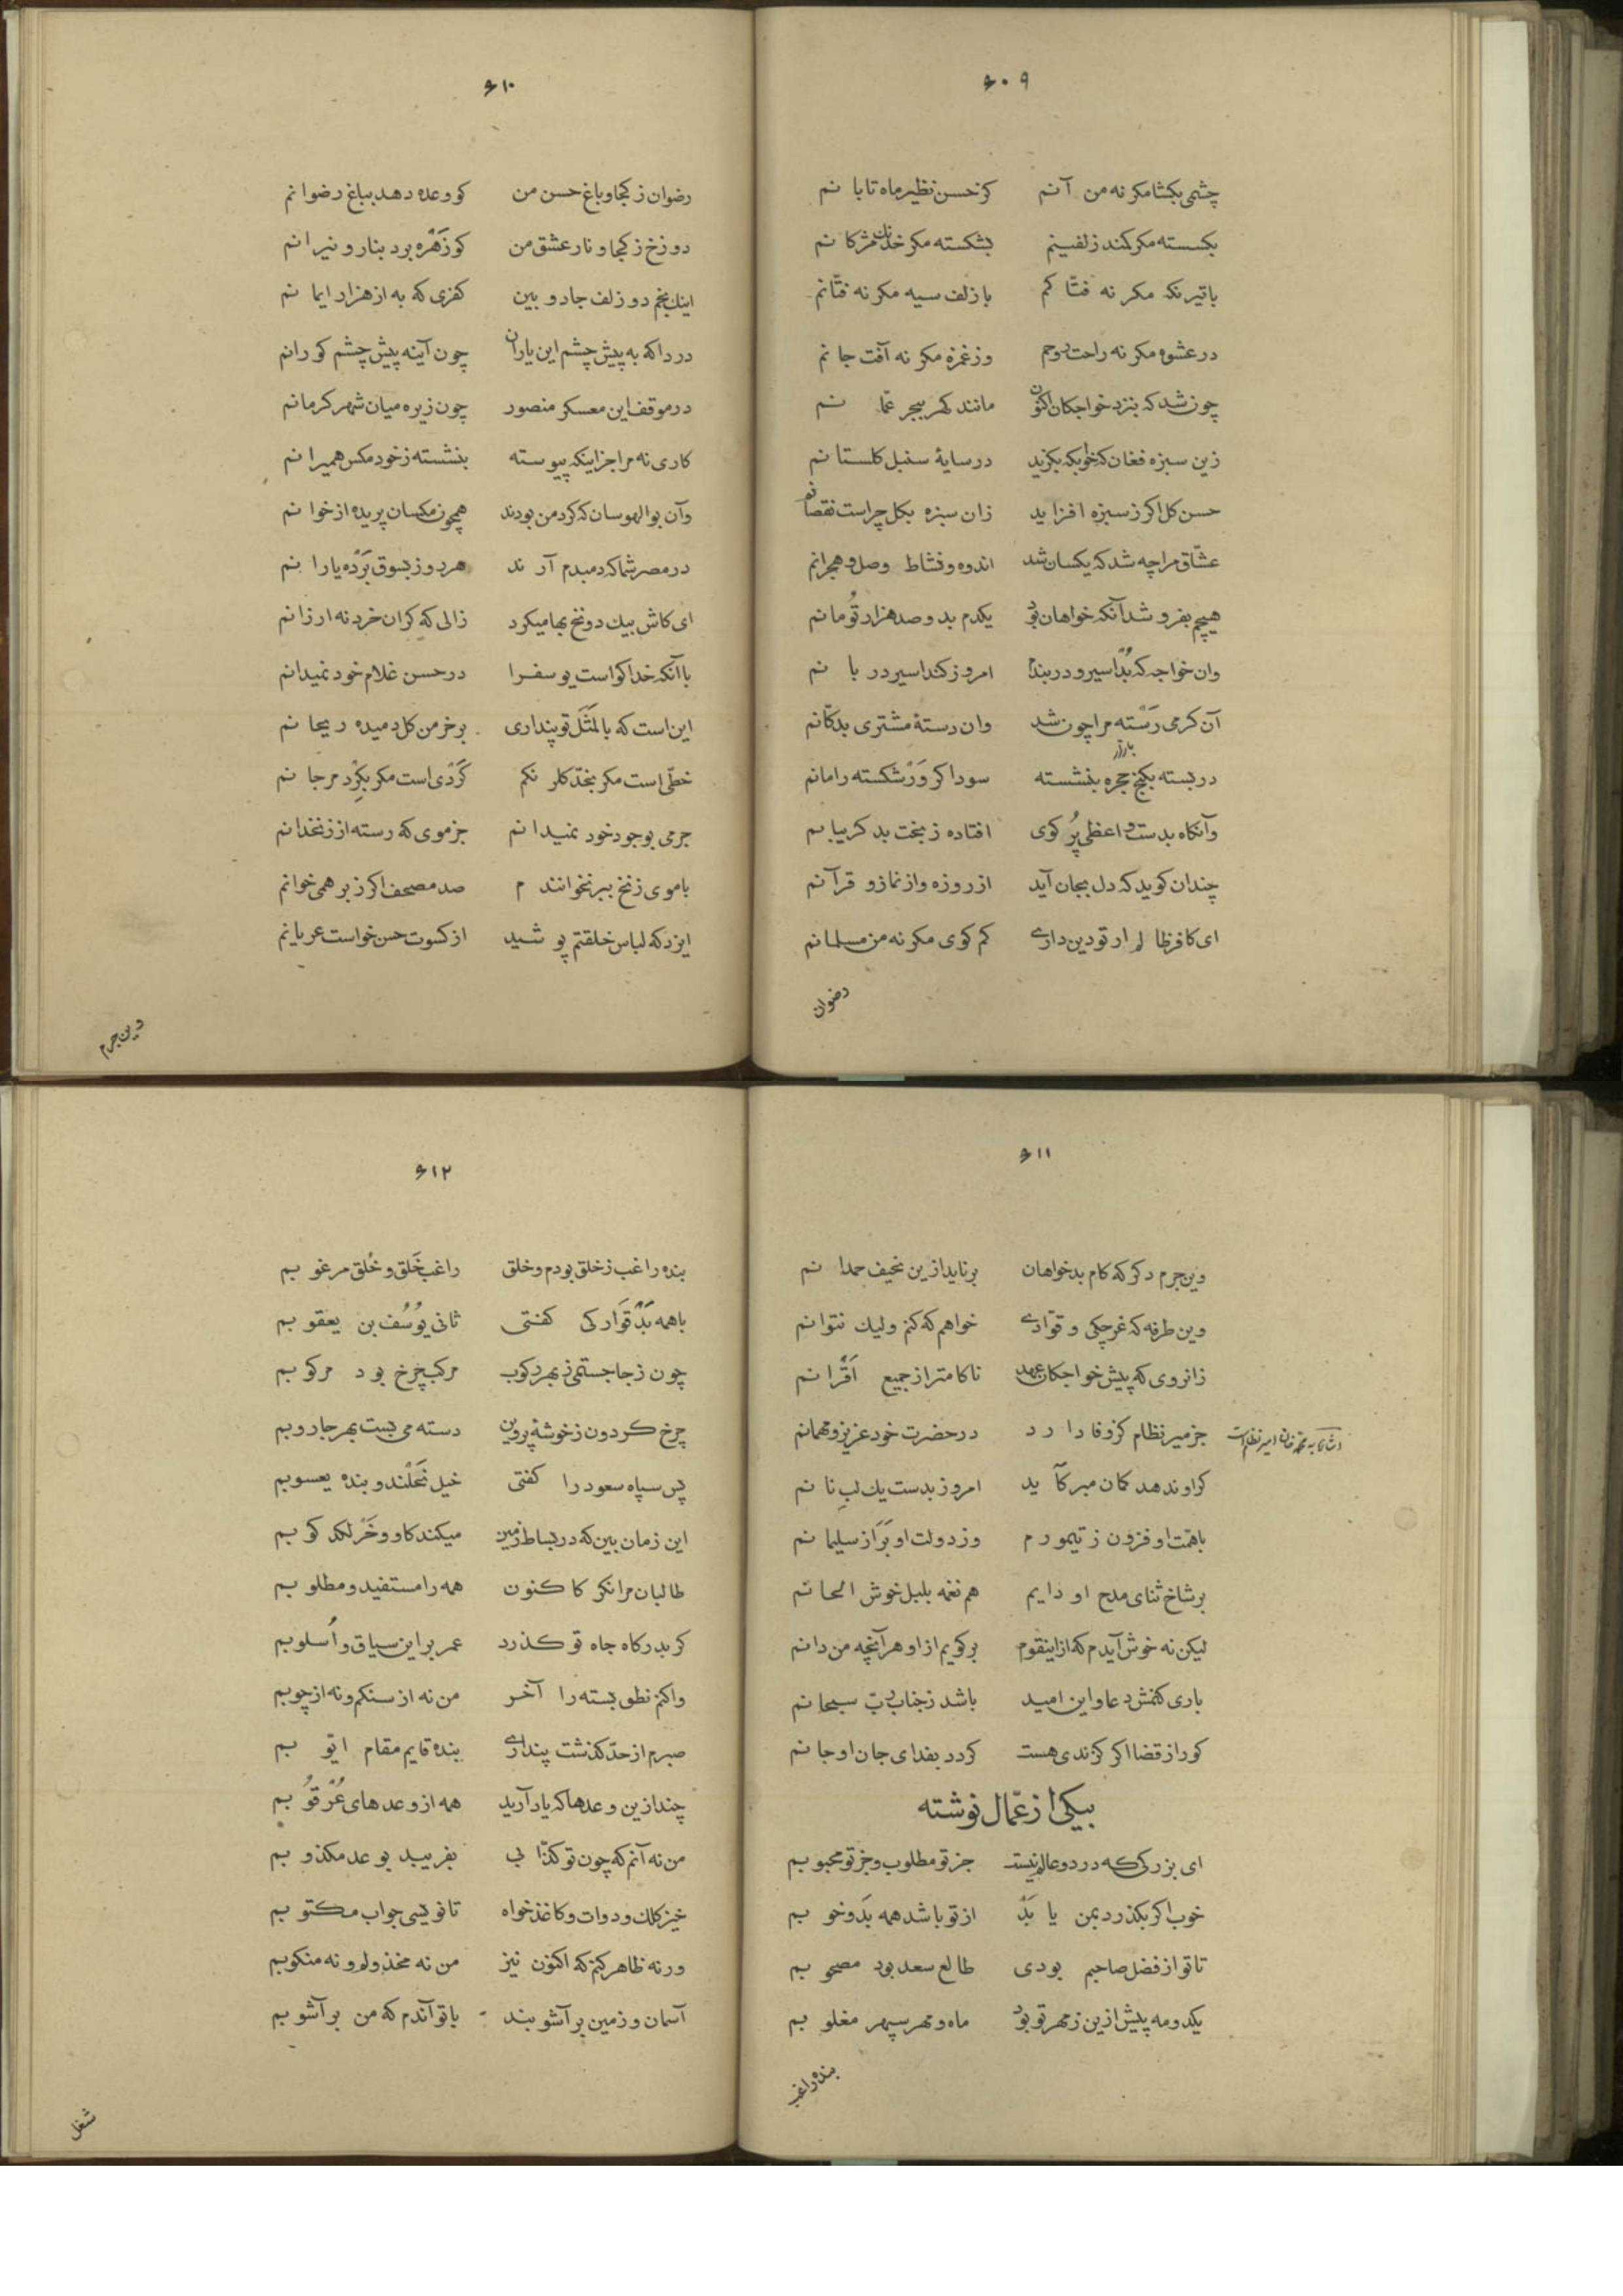 ۶۰۹
چشمی بکشا مکر نه من آنم کز حسن نظیر ماه تابانم
بکسسته مکر کمند زلفینم بشکسته مکر خدنك مژکانم
با تیر نکه مکر نه فتّاکم با زلف سیه مکر نه فتّانم
در عشوه مکر نه راحت روحم وز غمزه مکر نه آفت جانم
چون شد که بنزد خواجکان اکنون مانند کهر ببحر عمّانم
زین سبزه فغان که خوبکه بکزید در سایهٔ سنبل کلستانم
حسن کل اکر ز سبزه افزاید زان سبزه بکل چراست نقصانم
عشّاق مرا چه شد که یکسان شد اندوه و نشاط وصل و هجرانم
هیچم بفروشد آنکه خواهان بود یکدم بدو صد هزار تُومانم
وان خواجه که بُد اسیر و در بندم امروز کند اسیر دربانم
آن کرمی رَسته مرا چون شد وان رستهٔ مشتری بدکّانم
در بسته بکنج حجره بنشسته سوداکر وَرشکسته را مانم
بازار
وآنکاه بدست واعظی پُر کوی افتاده ز بخت بد کریبانم
چندان کوید که دل بجان آید از روزه و از نماز و قرآنم
ای کافر ظالم ار تو دین داری کم کوی مکر نه من مسلمانم
رضوان
۶۱۰
رضوان ز کجا و باغ حسن من کو وعده دهد بباغ رضوانم
دوزخ ز کجا و نار عشق من کو زَهره برد بنار و نیرانم
اینك بخم دو زلف جادو بین کفری که به از هزار ایمانم
دردا که به پیش چشم این یاران چون آینه پیش چشم کورانم
در موقف این معسکر منصور چون زیره میان شهر کرمانم
کاری نه مرا جز اینکه پیوسته بنشسته ز خود مکس همیرانم
وآن بوالهوسان که کرد من بودند همچون مکسان پریده از خوانم
در مصر شما که دمبدم آرند هر روز بسوق بَرده یارانم
ای کاش بیك دو نخ بها میکرد زالی که کران خرد نه ارزانم
با آنکه خدا کواست یوسف را در حسن غلام خود نمیدانم
این است که بالمَثَل تو پنداری بر خرمن کل دمیده ریحانم
خطّی است مکر بخدّ کلرنکم کَردی است مکر بکِرد مرجانم
جرمی بوجود خود نمیدانم جز موی که رسته از زنخدانم
با موی زنخ ببر نخوانندم صد مصحف اکر ز بر همی خوانم
ایزد که لباس خلقتم پوشید از کسوت حسن خواست عریانم
وین جرم
۶۱۱
وین جرم دکر که کام بدخواهان برناید ازین نحیف حمدانم
وین طرفه که غرچکی و قوّادی خواهم که کنم ولیك نتوانم
زانروی که پیش خواجکان عهد ناکامتر از جمیع اَقرانم
جز میر نظام کز وفا دارد در حضرت خود عزیز و مهمانم
کر او ندهد کمان مبر کآید امروز بدست یك لبِ نانم
با همّت او فزون ز تیمورم وز دولت او بَر از سلیمانم
بر شاخ ثنای مدح او دایم هم نغمه بلبل خوش الحانم
لیکن نه خوش آیدم که از اینقوم برکویم از او هر آنچه من دانم
باری کنمش دعا و این امید باشد ز جناب ربّ سبحانم
کو را ز قضا اکر کزندی هست کردد بفدای جان او جانم
بیکی از عمّال نوشته
ای بزرکی که در دو عالم نیست جز تو مطلوب و جز تو محبوبم
خوب اکر بکذرد بمن یا بَد از تو باشد همه بَد و خوبم
تا تو از فضل صاحبم بودی طالع سعد بود مصحوبم
یکدو مه پیش ازین ز مهر تو بود ماه و مهر سپهر مغلوبم
بنده راغب
۶۱۲
بنده راغب ز خلق بودم و خلق راغب خَلق و خُلق مرغوبم
با همه بَدقَوارکی کفتی ثانی یُوسُف بن یعقوبم
چون ز جا جستمی ز بهر رکوب مرکب چرخ بود مرکوبم
چرخ کردون ز خوشهٔ پروین دسته می بست بهر جاروبم
پس سپاه سعود را کفتی خیل نَحلند و بنده یعسوبم
این زمان بین که در بساط زمین میکند کاو و خَر لکد کوبم
طالبان مرا نکر کاکنون همه را مستفید و مطلوبم
کر بدرکاه جاه تو کذرد عمر بر این سیاق و اُسلوبم
واکنم نطق بسته را آخر من نه از سنکم و نه از چوبم
صبرم از حدّ کذشت پنداری بنده قایم مقام ایّوبم
چند ازین وعدها که یاد آرید همه از وعدهای عُرقُوبم
من نه آنم که چون تو کذّابی بفریبد بوعد مکذوبم
خیز کلك و دوات و کاغذ خواه تا نویسی جواب مکتوبم
ورنه ظاهر کنم که اکنون نیز من نه مخذولم و نه منکوبم
آسمان و زمین برآشوبند با تو آندم که من برآشوبم
شغل